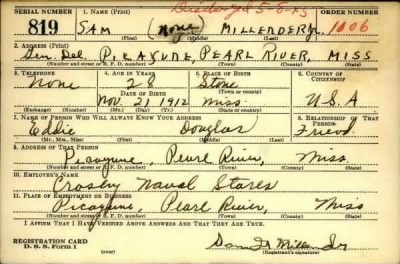 SERIAL NUMBER 1. NAME (Print) Discharged 5-5-45 ORDER NUMBER
819 SAM (None) MILLENDER Jr. 1606
(First) (Middle) (Last)
2. ADDRESS (Print)
Gen. Del. PICAYUNE, PEARL RIVER, MISS
(Number and street or R. F. D. number) (Town) (County) (State)
3. TELEPHONE 4. AGE IN YEARS 5. PLACE OF BIRTH 6. COUNTRY OF CITIZENSHIP
None 28 Stone
DATE OF BIRTH (Town or county)
Nov. 21 1912 Miss. U.S.A.
(Exchange) (Number) (Mo.) (Day) (Yr.) (State or country)
7. NAME OF PERSON WHO WILL ALWAYS KNOW YOUR ADDRESS 8. RELATIONSHIP OF THAT PERSON
Eddie Douglas Friend
(Mr., Mrs., Miss) (First) (Middle) (Last)
9. ADDRESS OF THAT PERSON
Picayune, Pearl River, Miss.
(Number and street or R. F. D. number) (Town) (County) (State)
10. EMPLOYER'S NAME
Crosby Naval Stores
11. PLACE OF EMPLOYMENT OR BUSINESS
Picayune, Pearl River, Miss
(Number and street or R. F. D. number) (Town) (County) (State)
I AFFIRM THAT I HAVE VERIFIED ABOVE ANSWERS AND THAT THEY ARE TRUE.
REGISTRATION CARD
D. S. S. Form 1
(Registrant's signature)